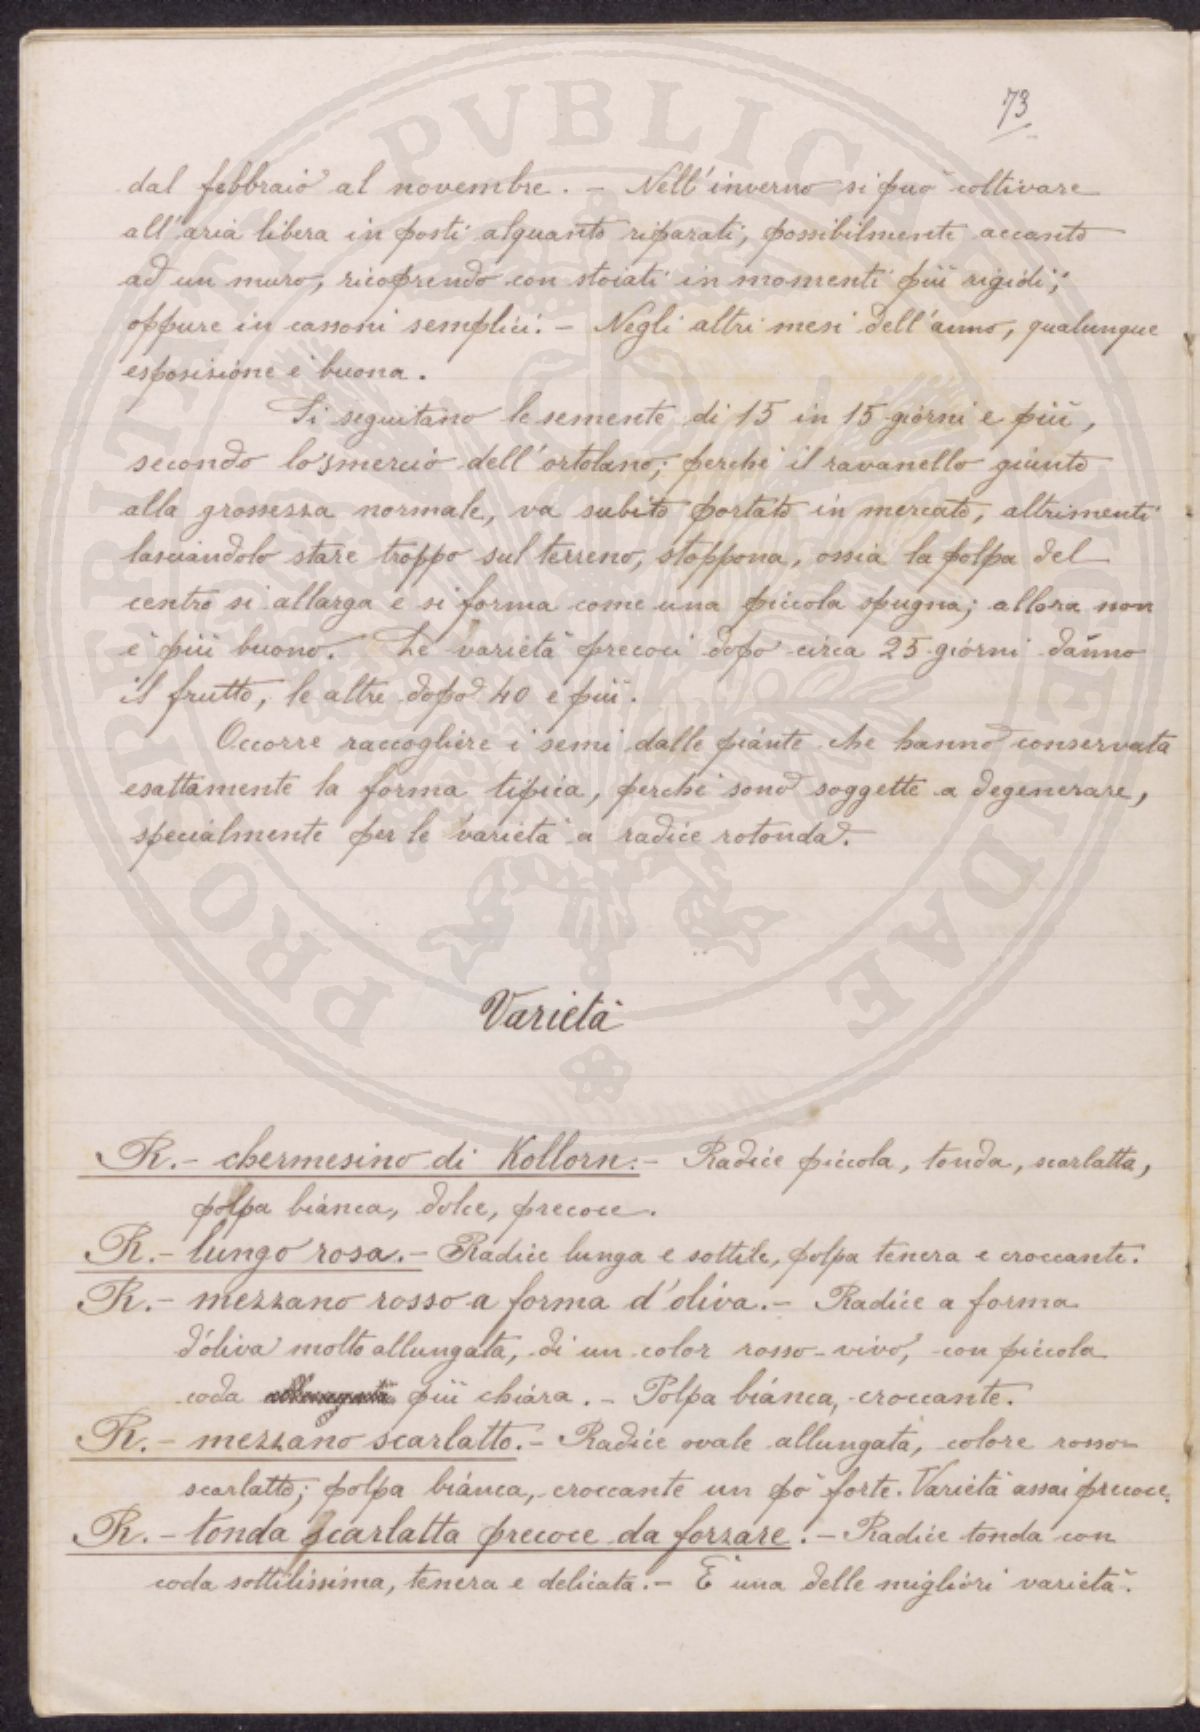 73
dal febbraio al novembre. - Nell'inverno si può coltivare
all'aria libera in posti alquanto riparati, possibilmente accanto
ad un muro, ricoprendo con stoiati in momenti più rigidi;
oppure in cassoni semplici. - Negli altri mesi dell'anno, qualunque
esposizione è buona.
Si seguitano le semente di 15 in 15 giorni e più,
secondo lo smercio dell'ortolano; perchè il ravanello giunto
alla grossezza normale, va subito portato in mercato, altrimenti
lasciandolo stare troppo sul terreno, stoppona, ossia la polpa del
centro si allarga e si forma come una piccola spugna; allora non
è più buono. Le varietà precoci dopo circa 25 giorni danno
il frutto, le altre dopo 40 e più.
Occorre raccogliere i semi dalle piante che hanno conservata
esattamente la forma tipica, perchè sono soggette a degenerare,
specialmente per le varietà a radice rotonda.
Varietà
R. - chermesino di Kollorn. - Radice piccola, tonda, scarlatta,
polpa bianca, dolce, precoce.
R. - lungo rosa. - Radice lunga e sottile, polpa tenera e croccante.
R. - mezzano rosso a forma d'oliva. - Radice a forma
d'oliva molto allungata, di un color rosso-vivo, con piccola
coda più chiara. - Polpa bianca, croccante.
R. - mezzano scarlatto. - Radice ovale allungata, colore rosso-
scarlatto; polpa bianca, croccante un pò forte. Varietà assai precoce.
R. - tonda scarlatta precoce da forzare. - Radice tonda con
coda sottilissima, tenera e delicata. - È una delle migliori varietà.
PROPERITATI PVBLICAE AVGENDAE